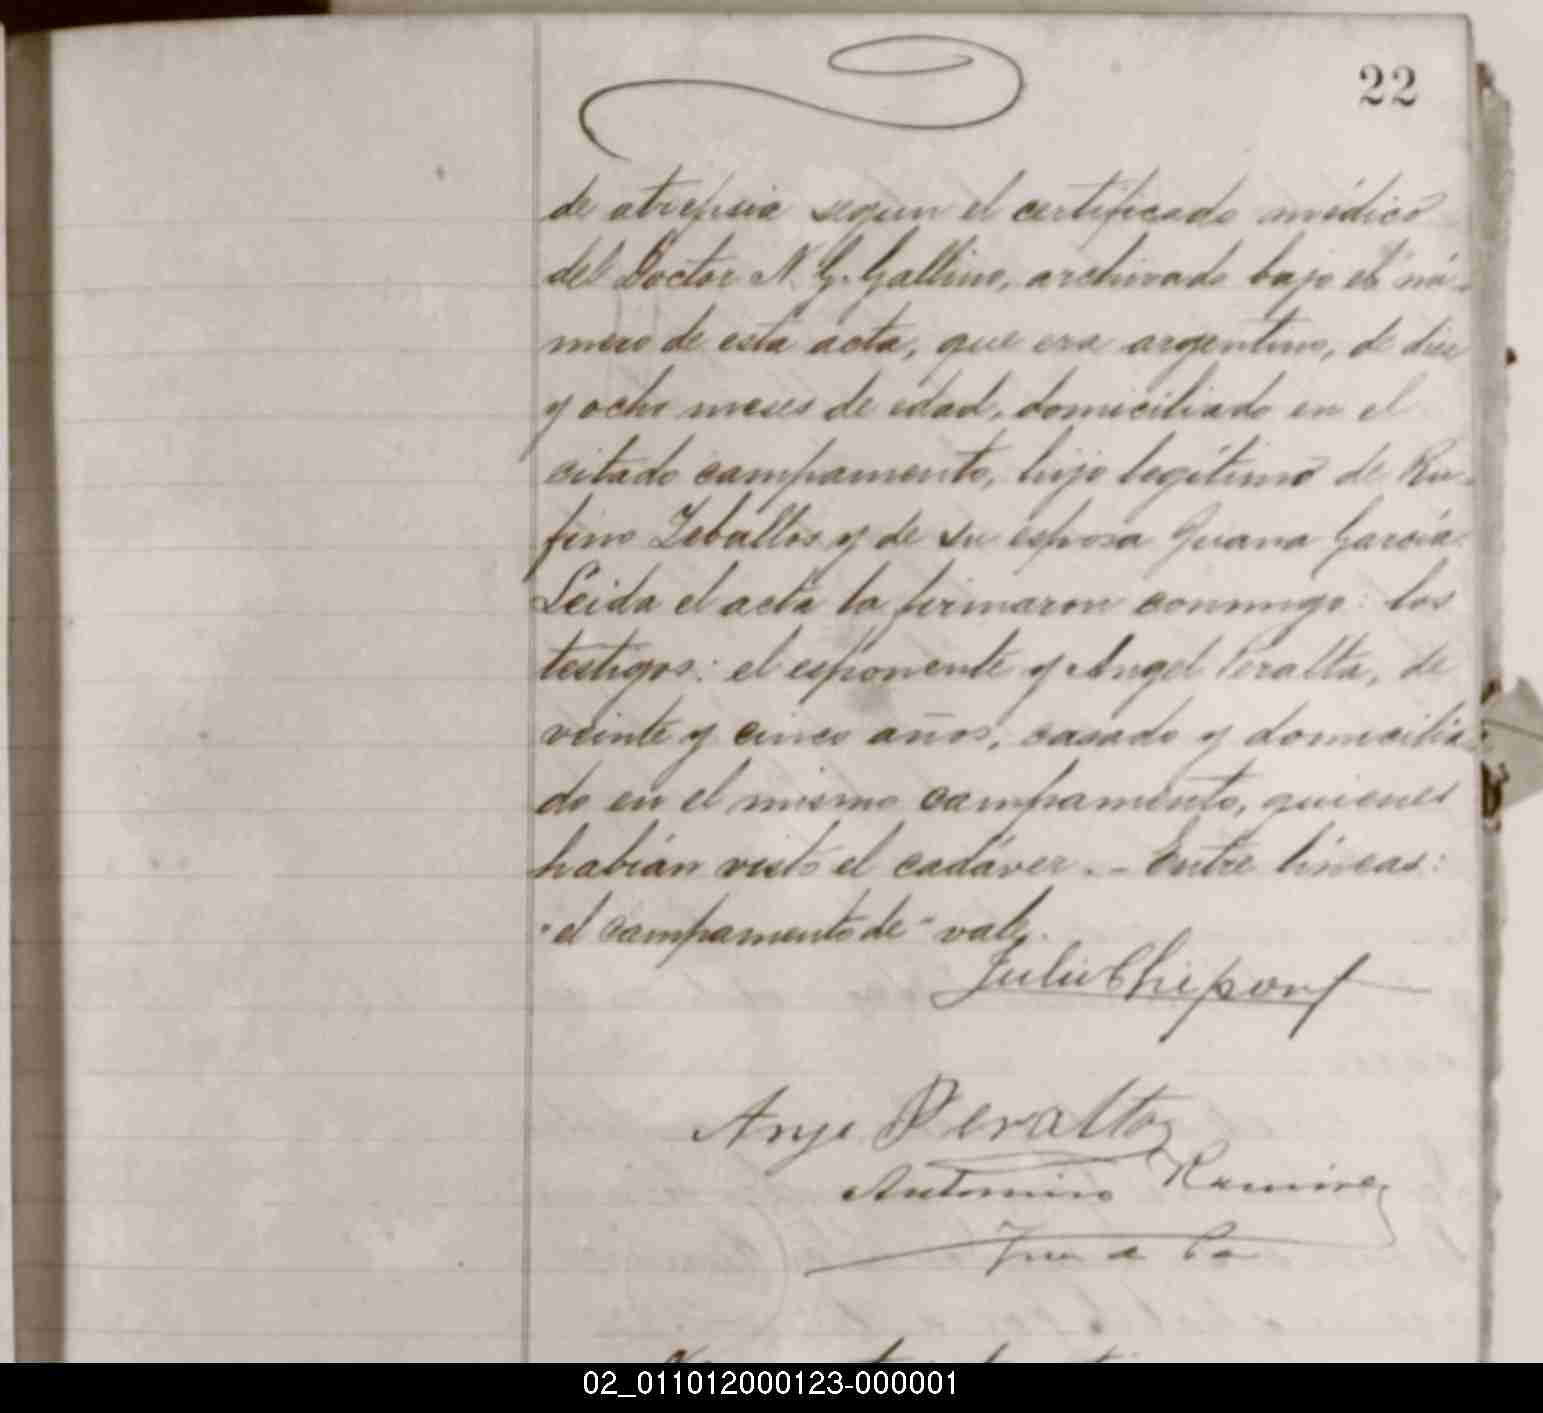 22
de atrepsia segun el certificado médico
del Doctor N. G. Gallino, archivado bajo el nú-
mero de esta acta, que era argentino, de diez
y ocho meses de edad, domiciliado en el
citado campamento, hijo legítimo de Ru-
fino Zeballos y de su esposa Juana García.
Leida el acta la firmaron conmigo: los
testigos: el esponente y Angel Peralta, de
veinte y cinco años, casado y domicilia-
do en el mismo campamento, quienes
habían visto el cadáver.- Entre líneas:
"el campamento de" vale.
Julio
Anje Peralta
Antonino Ramirez
02_011012000123-000001